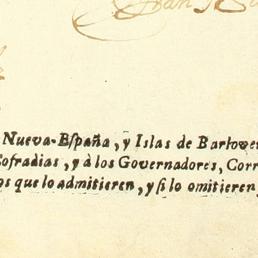 Nueva-España, y Islas de Barlove
Cofradias, y à los Governadores, Corr
os que lo admitieren, y si lo omitieren,